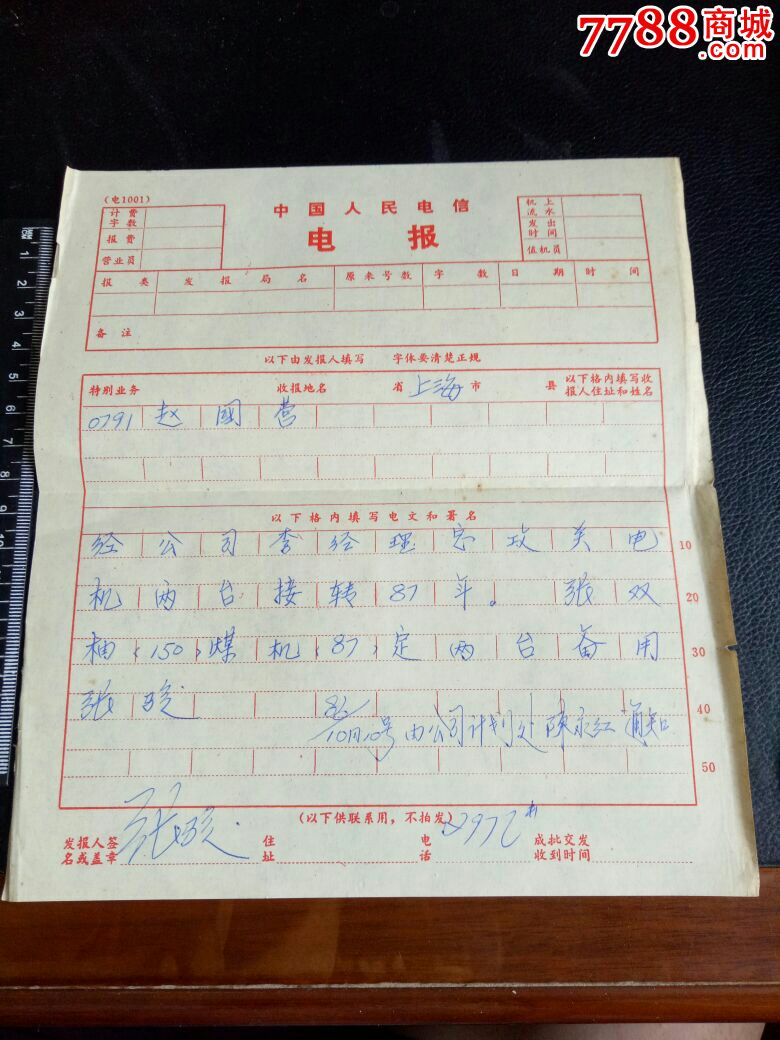 7788商城
.com
(电1001)
中国人民电信
电 报
计费字数
报费
营业员
机上流水
发出时间
值机员
报类 发报局名 原来号数 字数 日期 时间
备注
以下由发报人填写 字体要清楚正规
特别业务 收报地名 省 上海 市 县 以下格内填写收报人住址和姓名
0791 赵 國 营
以下格内填写电文和署名
经 公 司 李 经 理 攻 关 电 10
机 两 台 接 转 87 年。 张 双 20
柚 (150) 煤 机 (87) 定 两 台 备 用 30
张 40
86/10月10号 由公司计划处陈永红通知
50
(以下供联系用，不拍发)
发报人签名或盖章 张 住址 电话 成批交发收到时间